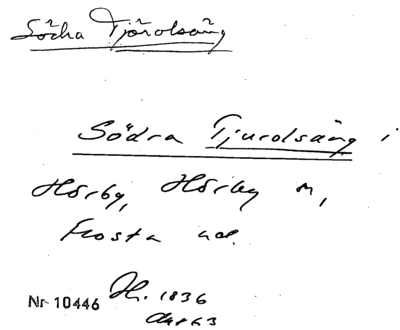 Södra Tjörolsäng
Södra Tjurolsäng i
Hörby, Hörby sn,
Frosta hd.
Nr 10446 Jr. 1836
Akt 63